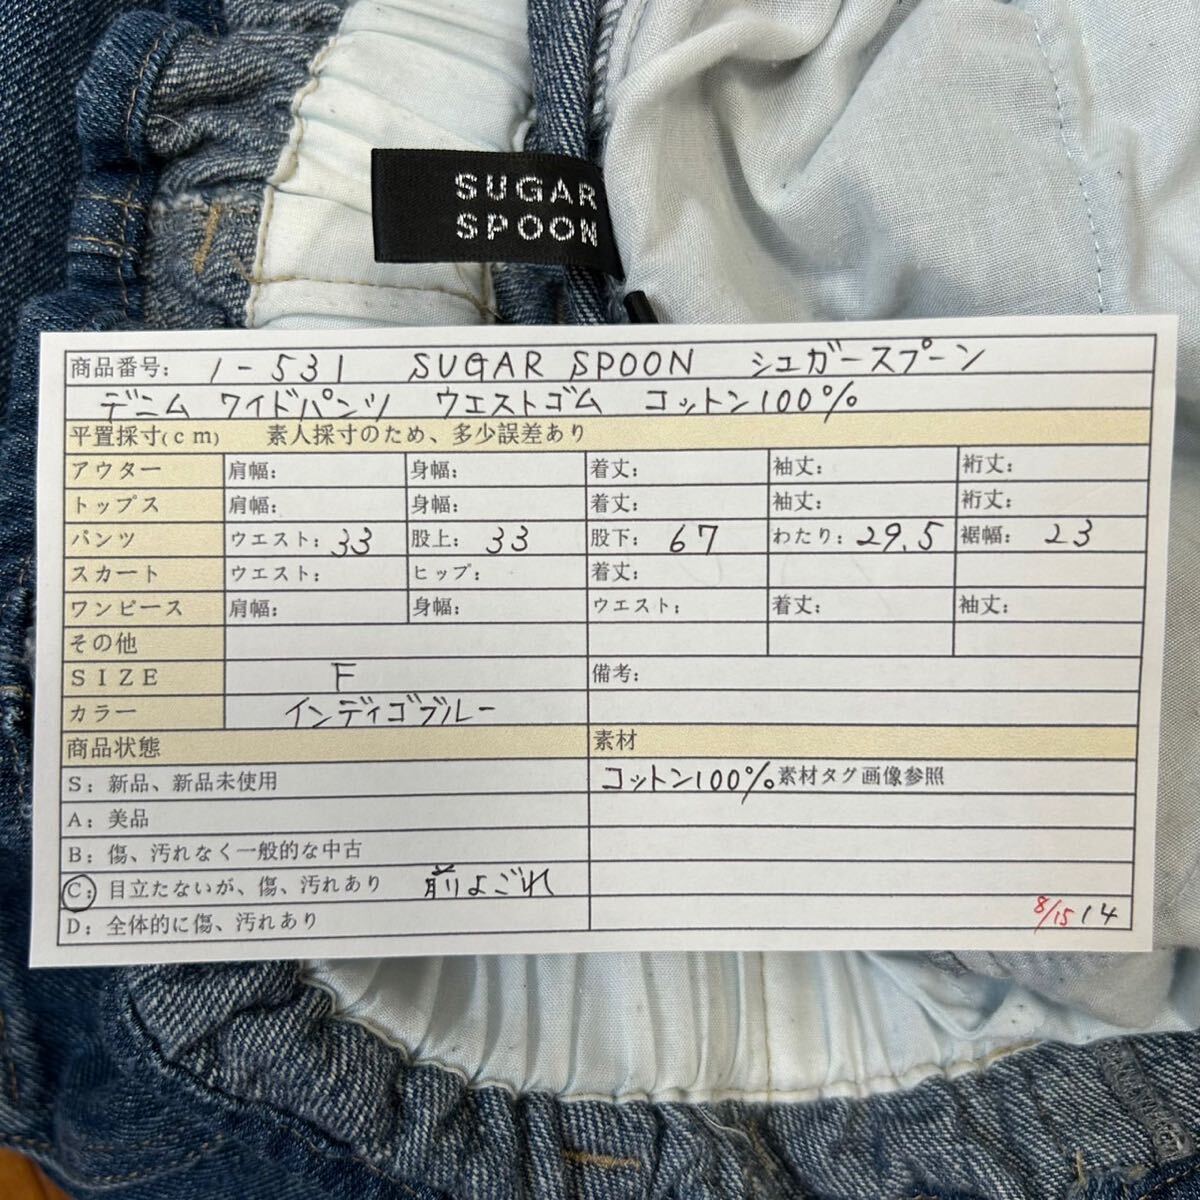 SUGAR
SPOON
商品番号: 1-531 SUGAR SPOON シュガースプーン
デニム ワイドパンツ ウエストゴム コットン100%
平置採寸(cm) 素人採寸のため、多少誤差あり
アウター 肩幅: 身幅: 着丈: 袖丈: 裄丈:
トップス 肩幅: 身幅: 着丈: 袖丈: 裄丈:
パンツ ウエスト: 33 股上: 33 股下: 67 わたり: 29.5 裾幅: 23
スカート ウエスト: ヒップ: 着丈:
ワンピース 肩幅: 身幅: ウエスト: 着丈: 袖丈:
その他
SIZE F 備考:
カラー インディゴブルー
商品状態 素材
S: 新品、新品未使用 コットン100%素材タグ画像参照
A: 美品
B: 傷、汚れなく一般的な中古
C: 目立たないが、傷、汚れあり 前よごれ
D: 全体的に傷、汚れあり 8/15 14